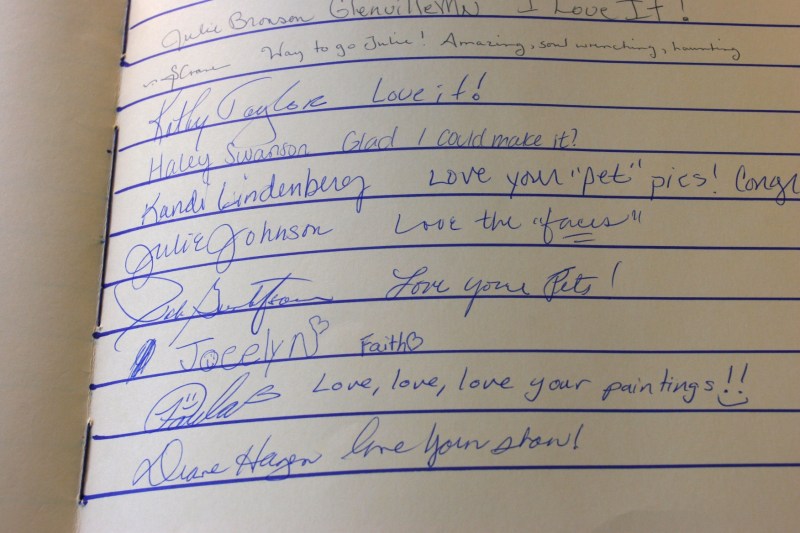 Julie Bronson Glenville MN I Love It!
Crane Way to go Julie! Amazing, soul wrenching, haunting
Kathy Taylor Love it!
Haley Swanson Glad I could make it?
Kandi Lindenberg Love your "pet" pics! Congr
Julie Johnson Love the "faces"
Love your Pets!
Jocelyn Faith
Paula Love, love, love your paintings!!
Diane Hagen love your show!